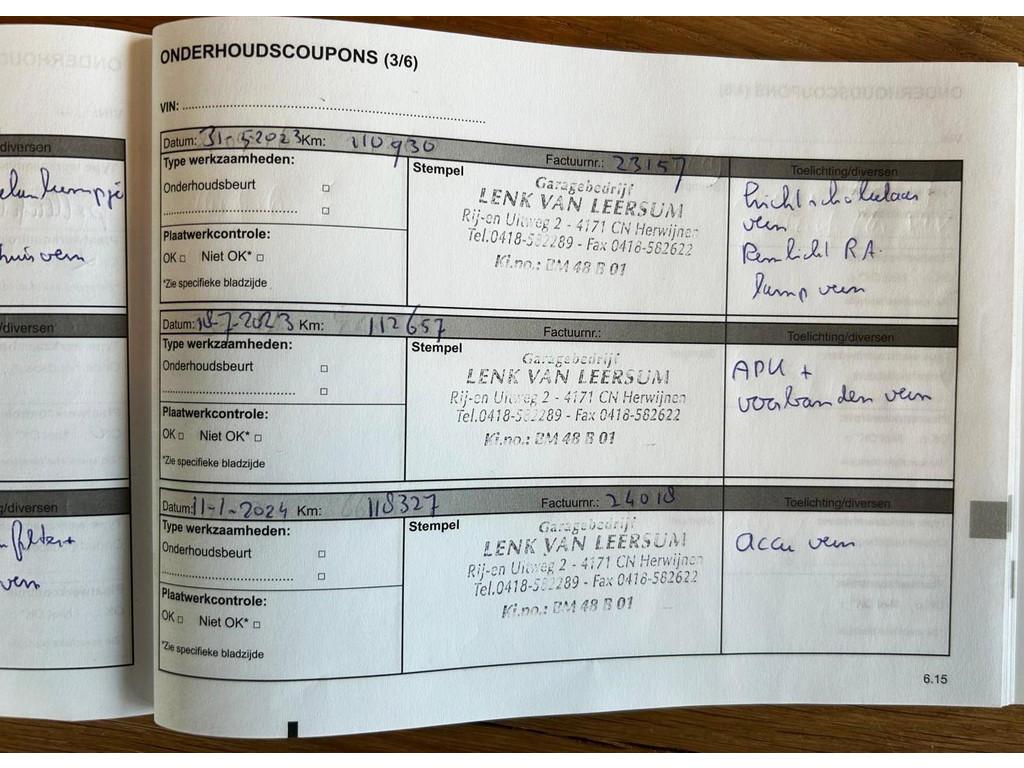 ONDERHOUDSCOUPONS (3/6)
VIN:
Datum: 31-5-2023 Km: 110930 Factuurnr.: 23157 Toelichting/diversen
Type werkzaamheden:
Onderhoudsbeurt
Plaatwerkcontrole:
OK Niet OK*
*Zie specifieke bladzijde
Stempel
Garagebedrijf
LENK VAN LEERSUM
Rij-en Uitweg 2 - 4171 CN Herwijnen
Tel.0418-582289 - Fax 0418-582622
Ki.no.: BM 48 B 01
lichtschakelaar
vern
Remlicht R.A.
lamp vern
Datum: 18-7-2023 Km: 112657 Factuurnr.: Toelichting/diversen
Type werkzaamheden:
Onderhoudsbeurt
Plaatwerkcontrole:
OK Niet OK*
*Zie specifieke bladzijde
Stempel
Garagebedrijf
LENK VAN LEERSUM
Rij-en Uitweg 2 - 4171 CN Herwijnen
Tel.0418-582289 - Fax 0418-582622
Ki.no.: BM 48 B 01
APK +
voorbanden vern
Datum: 11-1-2024 Km: 118327 Factuurnr.: 24018 Toelichting/diversen
Type werkzaamheden:
Onderhoudsbeurt
Plaatwerkcontrole:
OK Niet OK*
*Zie specifieke bladzijde
Stempel
Garagebedrijf
LENK VAN LEERSUM
Rij-en Uitweg 2 - 4171 CN Herwijnen
Tel.0418-582289 - Fax 0418-582622
Ki.no.: BM 48 B 01
accu vern
6.15